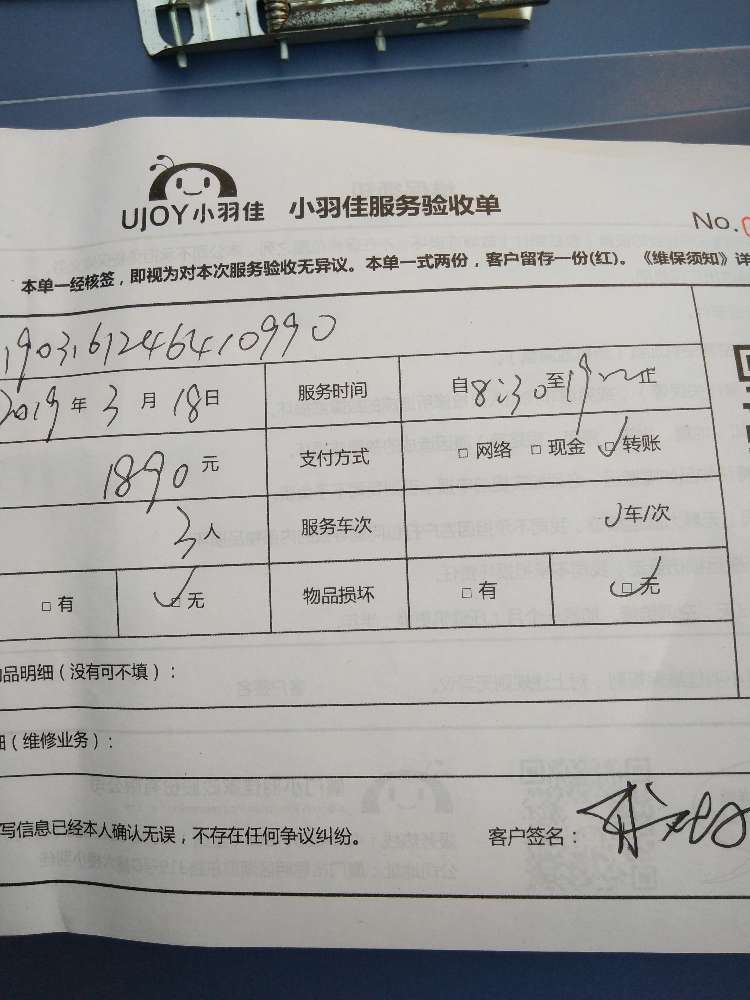 UJOY小羽佳 小羽佳服务验收单
No.
本单一经核签，即视为对本次服务验收无异议。本单一式两份，客户留存一份(红)。《维保须知》详
1903161246410990
2019年3月18日 服务时间 自8:30至19 止
1890元 支付方式 □网络 □现金 ☑转账
3人 服务车次 车/次
□有 ☑无 物品损坏 □有 ☑无
品明细（没有可不填）：
（维修业务）：
写信息已经本人确认无误，不存在任何争议纠纷。 客户签名：